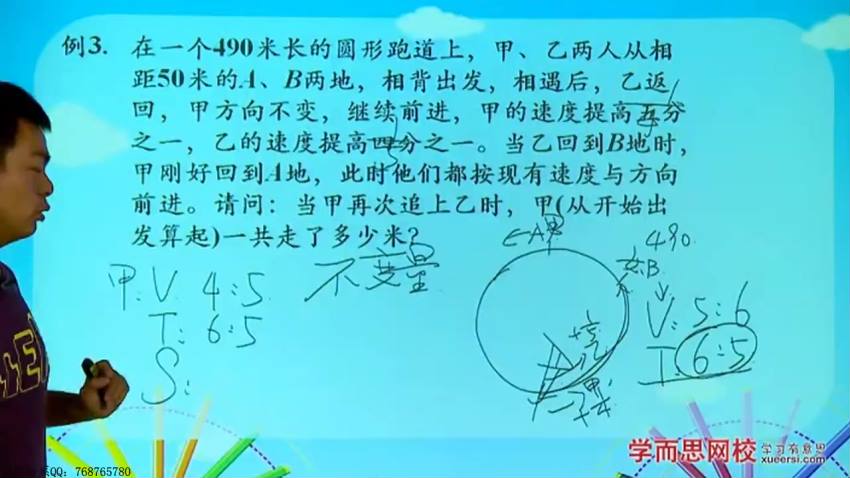 例3. 在一个490米长的圆形跑道上，甲、乙两人从相
距50米的A、B两地，相背出发，相遇后，乙返
回，甲方向不变，继续前进，甲的速度提高五分
之一，乙的速度提高四分之一。当乙回到B地时，
甲刚好回到A地，此时他们都按现有速度与方向
前进。请问：当甲再次追上乙时，甲(从开始出
发算起)一共走了多少米？
甲: V. 4:5
T: 6:5
S:
不变量
←A甲
490.
乙B
V: 5:6
T: 6:5
学而思网校 学习有意思
xueersi.com
QQ: 768765780